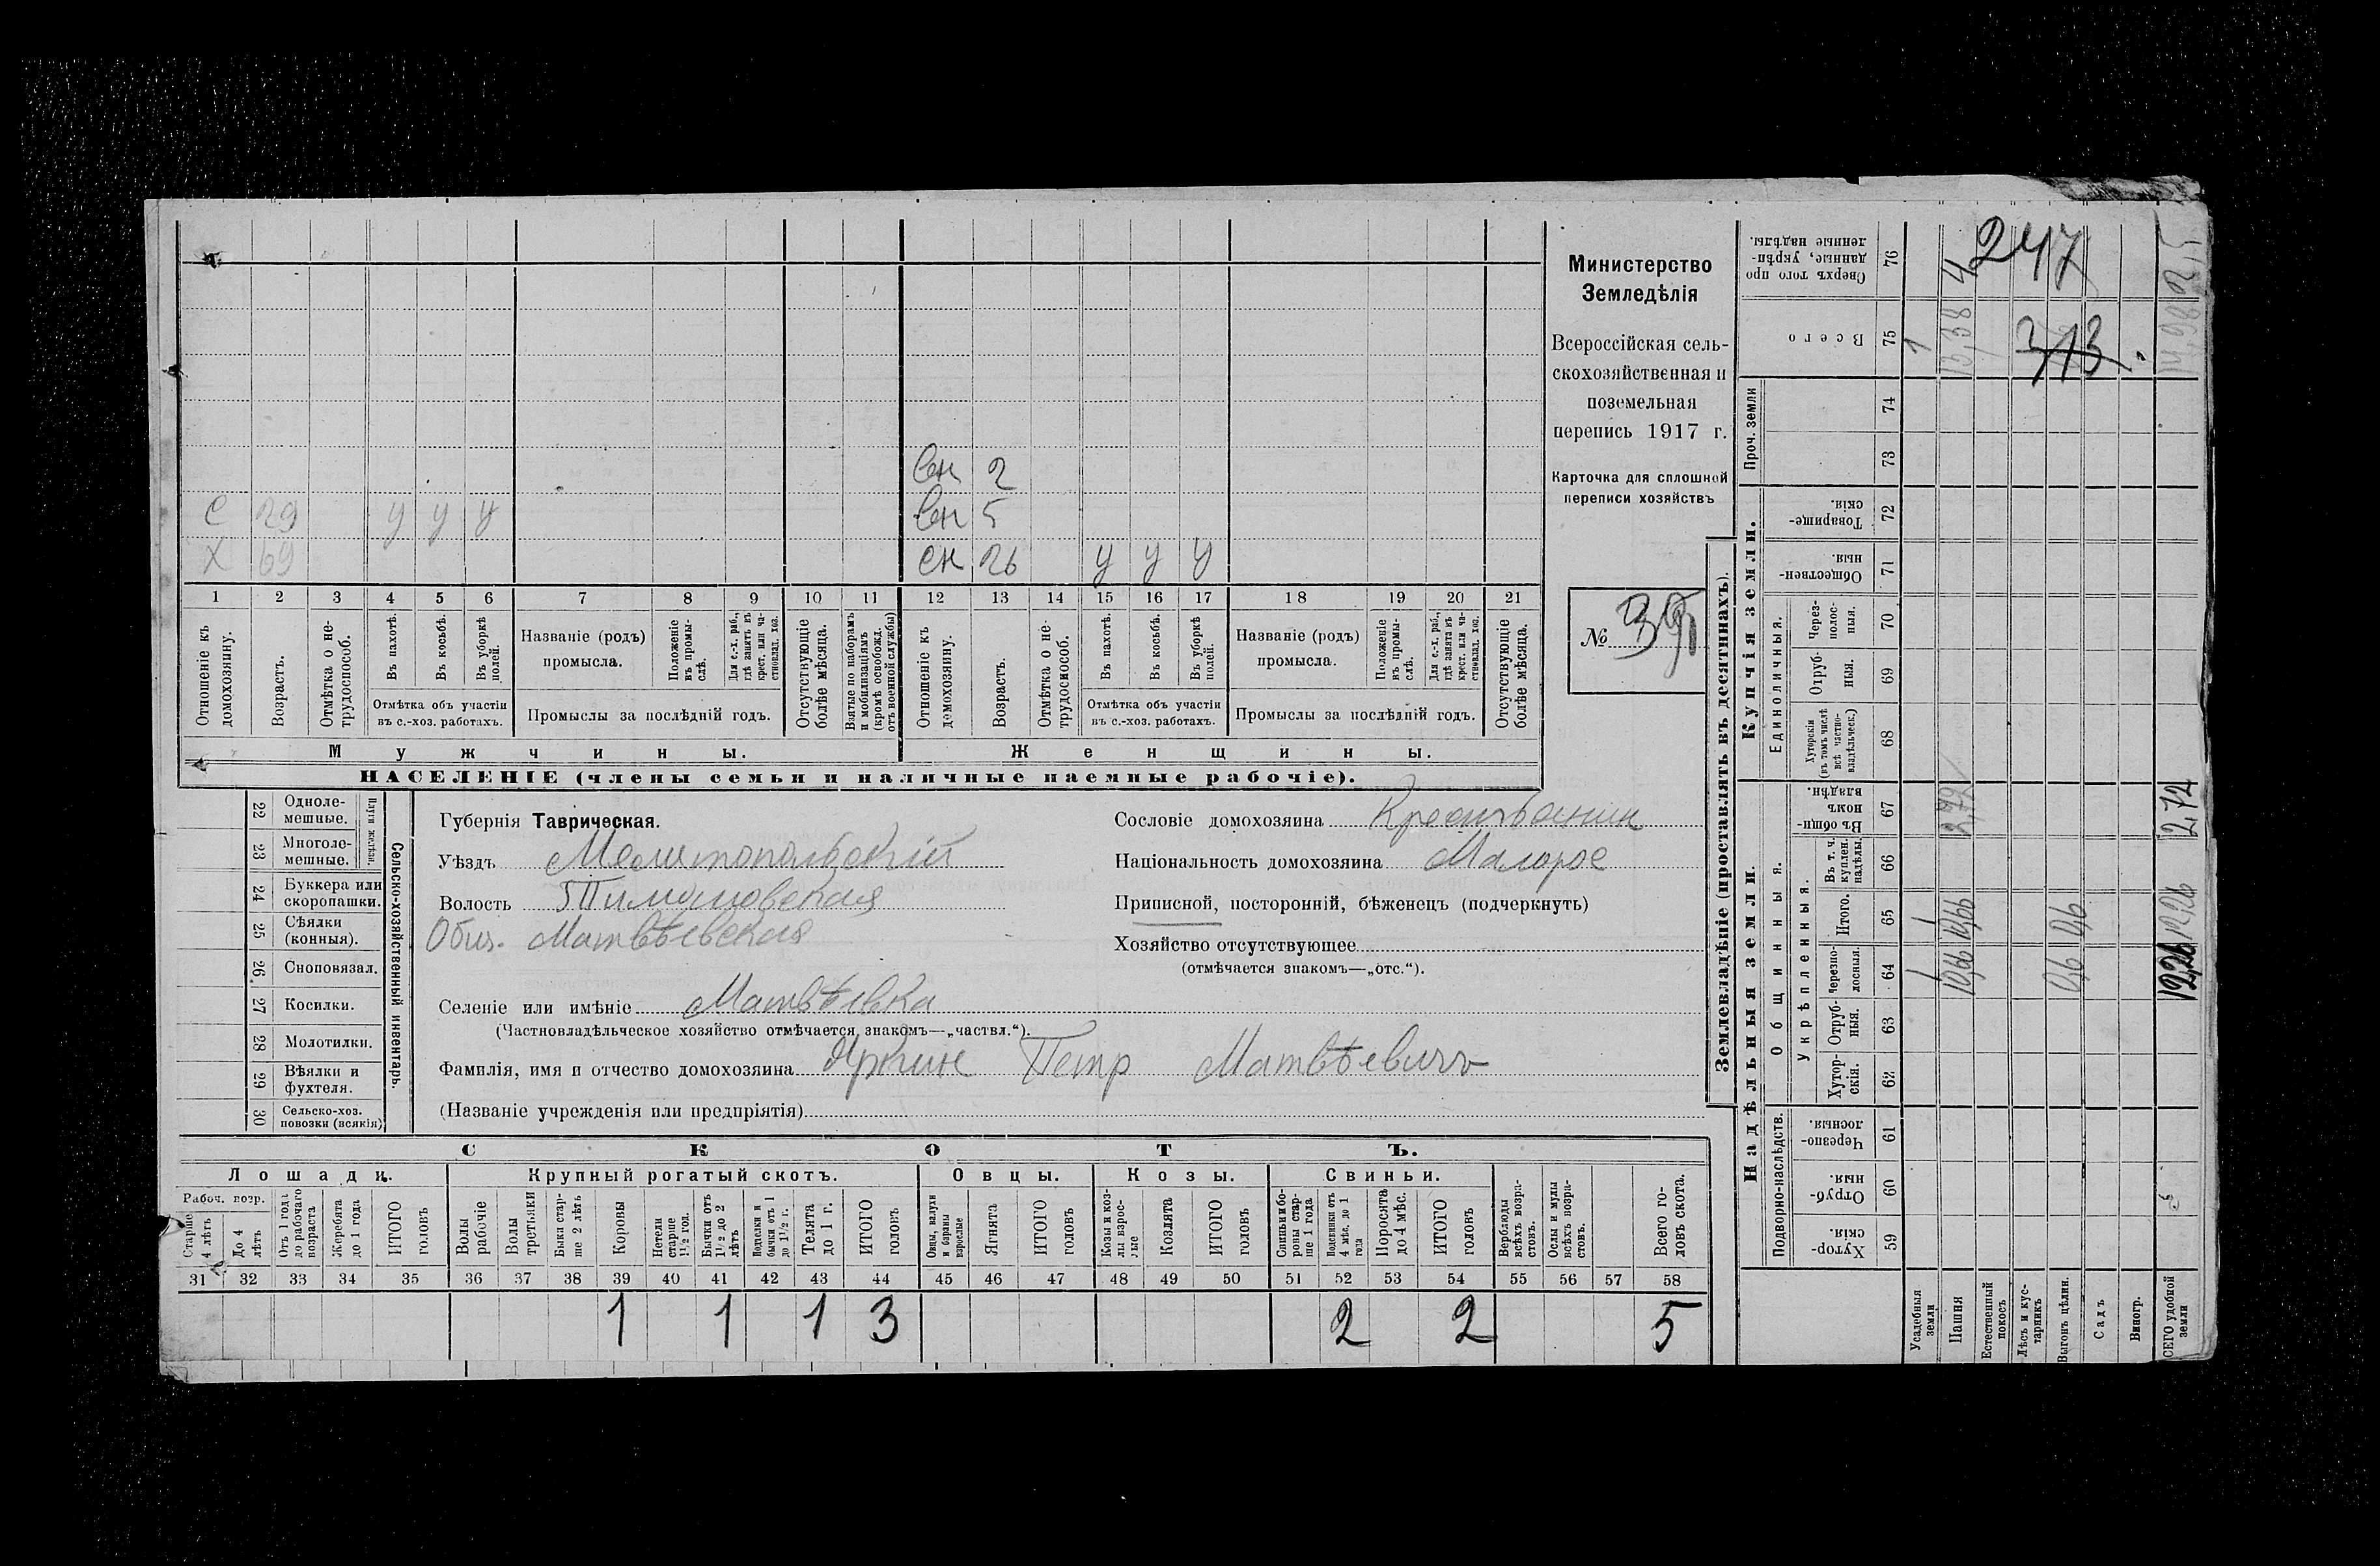 Министерство
Земледѣлія
Всероссійская сель-
скохозяйственная и
поземельная
перепись 1917 г.
Карточка для сплошной
переписи хозяйствъ
№ 39
вн 2
с 29 у у у вн 5
х 69 сн 26 у у у
1 2 3 4 5 6 7 8 9 10 11 12 13 14 15 16 17 18 19 20 21
Отношеніе къ домохозяину.
Возрастъ.
Отмѣтка о не-трудоспособ.
Въ пахотѣ.
Въ косьбѣ.
Въ уборкѣ полей.
Отмѣтка объ участіи
въ с.-хоз. работахъ.
Названіе (родъ)
промысла.
Положеніе въ промы-слѣ.
Для с.-х. раб., гдѣ занятъ въ крест. или ча-стновлад. хоз.
Промыслы за послѣдній годъ.
Отсутствующіе болѣе мѣсяца.
Взятые по наборамъ и мобилизаціямъ (кромѣ освобожд. отъ военной службы)
Отношеніе къ домохозяину.
Возрастъ.
Отмѣтка о не-трудоспособ.
Въ пахотѣ.
Въ косьбѣ.
Въ уборкѣ полей.
Отмѣтка объ участіи
въ с.-хоз. работахъ.
Названіе (родъ)
промысла.
Положеніе въ промы-слѣ.
Для с.-х. раб., гдѣ занята въ крест. или ча-стновлад. хоз.
Промыслы за послѣдній годъ.
Отсутствующіе болѣе мѣсяца.
Мужчины. Женщины.
НАСЕЛЕНІЕ (члены семьи и наличные наемные рабочіе).
Сельско-хозяйственный инвентарь.
Плуги желѣзн.
22 Однолемешные.
23 Многолемешные.
24 Буккера или скоропашки.
25 Сѣялки (конныя).
26 Сноповязал.
27 Косилки.
28 Молотилки.
29 Вѣялки и фухтеля.
30 Сельско-хоз. повозки (всякія)
Губернія Таврическая.
Уѣздъ Мелитопольскій
Волость Тимошовская
Общ. Матвѣевская
Селеніе или имѣніе Матвѣевка
(Частновладѣльческое хозяйство отмѣчается знакомъ—„частвл.“).
Фамилія, имя и отчество домохозяина Петр Матвѣевичъ
(Названіе учрежденія или предпріятія)
Сословіе домохозяина Крестьянин
Національность домохозяина Малорос
Приписной, посторонній, бѣженецъ (подчеркнуть)
Хозяйство отсутствующее
(отмѣчается знакомъ—„отс.“).
СКОТЪ.
Лошади. Крупный рогатый скотъ. Овцы. Козы. Свиньи.
Рабоч. возр.
Старше 4 лѣтъ
До 4 лѣтъ
Отъ 1 года до рабочаго возраста
Жеребята до 1 года
ИТОГО головъ
Волы рабочіе
Волы третьяки
Быки стар-ше 2 лѣтъ
Коровы
Нетели старше 1½ год.
Бычки отъ 1½ до 2 лѣтъ
Подтелки и бычки отъ 1 до 1½ г.
Телята до 1 г.
ИТОГО головъ
Овцы, валухи и бараны взрослые
Ягнята
ИТОГО головъ
Козы и коз-лы взрос-лые
Козлята
ИТОГО головъ
Свиньи и бо-ровы стар-ше 1 года
Подсвинки отъ 4 мѣс. до 1 года
Поросята до 4 мѣс.
ИТОГО головъ
Верблюды всѣхъ возра-стовъ.
Ослы и мулы всѣхъ возра-стовъ.
Всего го-ловъ скота.
31 32 33 34 35 36 37 38 39 40 41 42 43 44 45 46 47 48 49 50 51 52 53 54 55 56 57 58
1 1 1 3 2 2 5
Землевладѣніе (проставлять въ десятинахъ).
Надѣльныя земли.
Купчія земли.
Проч. земли
Подворно-наслѣдств.
Общинныя.
Укрѣпленныя.
Единоличныя.
59 Хутор-скія.
60 Отруб-ныя.
61 Черезпо-лосныя.
62 Хутор-скія.
63 Отруб-ныя.
64 Черезпо-лосныя.
65 Итого.
66 Въ т. ч. куплен. надѣлы.
67 Въ общи-номъ владѣн.
68 Хуторскія (въ томъ числѣ всѣ частно-владѣльческ.)
69 Отруб-ныя.
70 Через-полос-ныя.
71 Обществен-ныя.
72 Товарище-скія.
73
74
75 Всего
76 Сверхъ того про-данные, укрѣп-ленные надѣлы.
Усадебныя земли
Пашня
Естественный покосъ
Лѣсъ и кус-тарникъ
Выгонъ цѣлин.
Садъ
Виногр.
ВСЕГО удобной земли
247
313
1
2,72
12,26